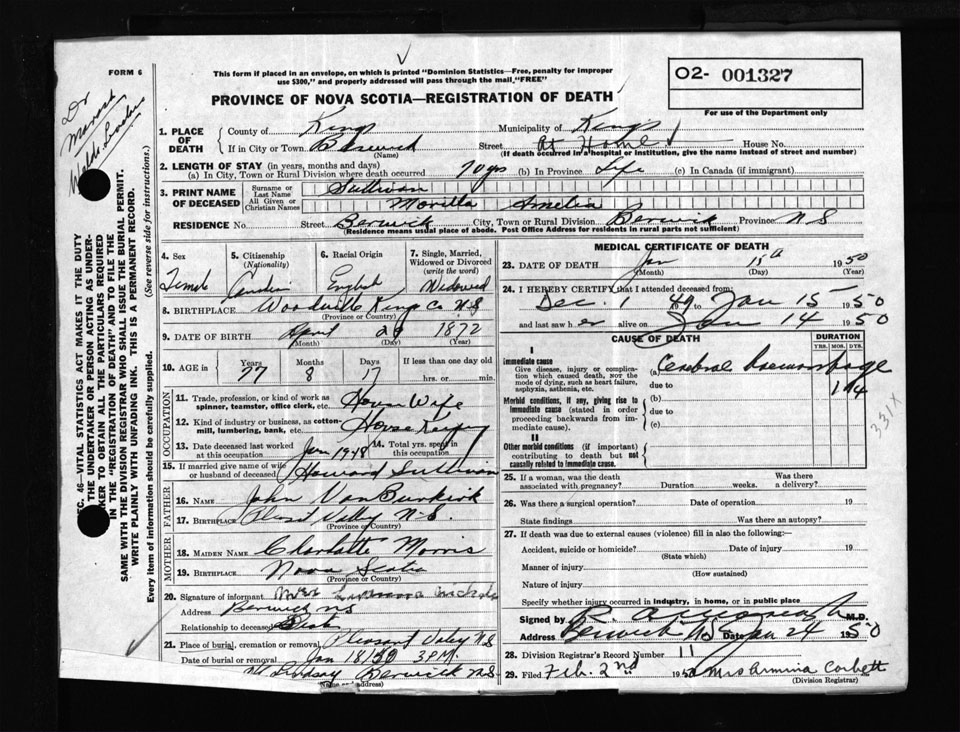 FORM 6
This form if placed in an envelope, on which is printed "Dominion Statistics—Free, penalty for improper
use $300," and properly addressed will pass through the mail, "FREE"
PROVINCE OF NOVA SCOTIA—REGISTRATION OF DEATH
O2- 001327
For use of the Department only
Dr
SEC. 46—VITAL STATISTICS ACT MAKES IT THE DUTY
OF THE UNDERTAKER OR PERSON ACTING AS UNDER-
TAKER TO OBTAIN ALL THE PARTICULARS REQUIRED
IN THE "REGISTRATION OF DEATH" AND TO FILE THE
SAME WITH THE DIVISION REGISTRAR WHO SHALL ISSUE THE BURIAL PERMIT.
WRITE PLAINLY WITH UNFADING INK. THIS IS A PERMANENT RECORD.
Every item of information should be carefully supplied. (See reverse side for instructions.)
1. PLACE OF DEATH County of Kings Municipality of Kings
If in City or Town Berwick (Name) Street At Home House No.
(If death occurred in a hospital or institution, give the name instead of street and number)
2. LENGTH OF STAY (in years, months and days)
(a) In City, Town or Rural Division where death occurred 70 yrs (b) In Province Life (c) In Canada (if immigrant)
3. PRINT NAME OF DECEASED Surname or Last Name Sullivan
All Given or Christian Names Morilla Amelia
RESIDENCE No. Street Berwick City, Town or Rural Division Berwick Province N S
(Residence means usual place of abode. Post Office Address for residents in rural parts not sufficient)
4. Sex Female
5. Citizenship (Nationality) Canadian
6. Racial Origin English
7. Single, Married, Widowed or Divorced (write the word) Widowed
8. BIRTHPLACE Woodville Kings Co N.S (Province or Country)
9. DATE OF BIRTH April (Month) 29 (Day) 1872 (Year)
10. AGE in Years 77 Months 8 Days 17 If less than one day old hrs. or min.
OCCUPATION
11. Trade, profession, or kind of work as spinner, teamster, office clerk, etc. House Wife
12. Kind of industry or business, as cotton-mill, lumbering, bank, etc. House Keeping
13. Date deceased last worked at this occupation Jan 1948 14. Total yrs. spent in this occupation
15. If married give name of wife or husband of deceased Howard Sullivan
FATHER
16. NAME John VanBuskirk
17. BIRTHPLACE Valley N.S. (Province or Country)
MOTHER
18. MAIDEN NAME Charlotte Morris
19. BIRTHPLACE Nova Scotia (Province or Country)
20. Signature of informant
Address Berwick N S
Relationship to deceased
21. Place of burial, cremation or removal Pleasant Valley N S
Date of burial or removal Jan 18/50 3 P.M.
Lindsay Berwick N.S.
(Name or address)
MEDICAL CERTIFICATE OF DEATH
23. DATE OF DEATH Jan (Month) 15th (Day) 1950 (Year)
24. I HEREBY CERTIFY that I attended deceased from:
Dec. 1 1949 to Jan 15 1950
and last saw her alive on Jan 14 1950
CAUSE OF DEATH
DURATION
YRS. MOS. DYS.
I
Immediate cause
Give disease, injury or complication which caused death, NOT the mode of dying, such as heart failure, asphyxia, asthenia, etc.
(a) Cerebral haemorrhage
due to 1 14
Morbid conditions, if any, giving rise to immediate cause (stated in order proceeding backwards from immediate cause).
(b)
due to
(c)
II
Other morbid conditions (if important) contributing to death but not causally related to immediate cause.
331X
25. If a woman, was the death associated with pregnancy? Duration weeks. Was there a delivery?
26. Was there a surgical operation? Date of operation 19
State findings Was there an autopsy?
27. If death was due to external causes (violence) fill in also the following:—
Accident, suicide or homicide? (State which) Date of injury 19
Manner of injury (How sustained)
Nature of injury
Specify whether injury occurred in industry, in home, or in public place
Signed by M.D.
Address Berwick NS Date Jan 24 1950
28. Division Registrar's Record Number 11
29. Filed Feb. 2nd 1950 Mrs Armina Corbett
(Division Registrar)